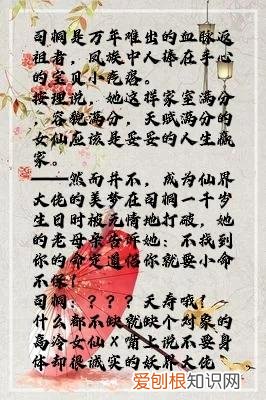 司桐是万年难出的血脉返
祖者，凤族中人捧在手心
的宝贝小疙瘩。
按理说，她这样家室满分
，容貌满分，天赋满分的
女仙应该是妥妥的人生赢
家。
——然而并不，成为仙界
大佬的美梦在司桐一千岁
生日时被无情地打破，她
的老母亲告诉她：不找到
你的命定道侣你就要小命
不保！
司桐：？？？天寿哦！
什么都不缺就缺个对象的
高冷女仙x嘴上说不要身
体却很诚实的妖界大佬
爱刨根知识网